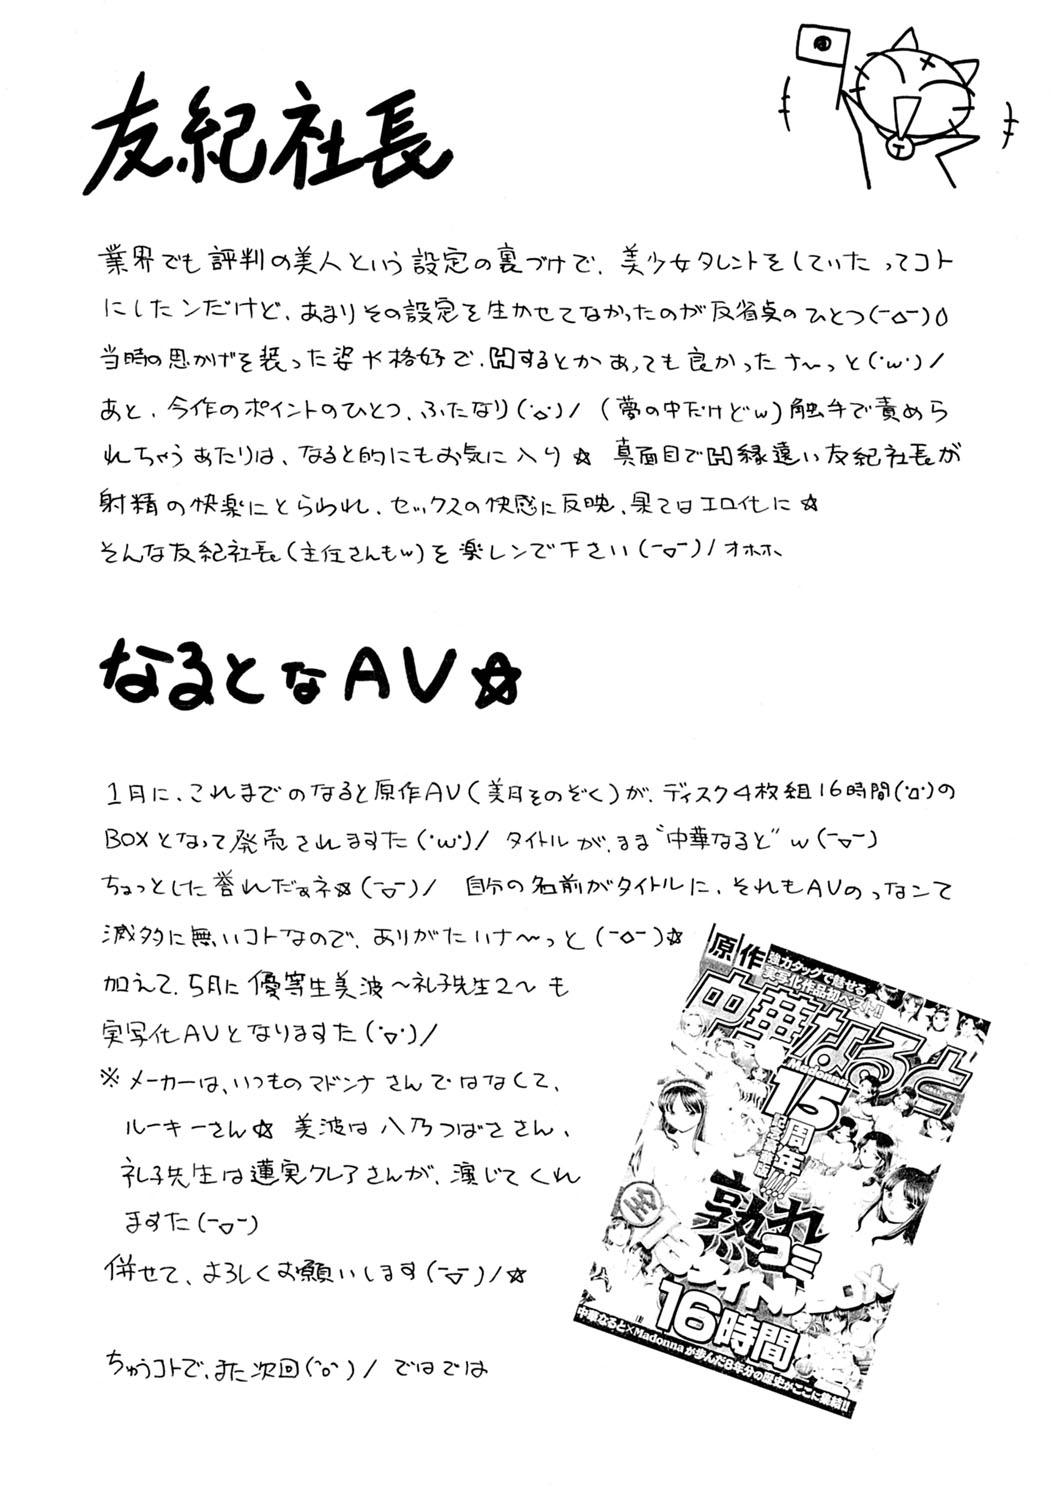 友紀社長
業界でも評判の美人という設定の裏づけで、美少女タレントをしていたってコト
にしたンだけど、あまりその設定を生かせてなかったのが反省点のひとつ(ー△ー)
当時の思かげを装った姿や格好で、Hするとかあっても良かったナ〜っと(・w・)/
あと、今作のポイントのひとつ、ふたなり(・◇・)/ (夢の中だけどw) 触手で責めら
れちゃうあたりは、なると的にもお気に入り☆ 真面目でH縁遠い友紀社長が
射精の快楽にとらわれ、セックスの快感に反映、果てはエロ化に☆
そんな友紀社長(主任さんもw)を楽しンで下さい(ー▽ー)/ オホホ、
なるとなAV☆
1月に、これまでのなると原作AV(美月そのぞく)が、ディスク4枚組16時間(・ロ・)の
BOXとなって発売されますた(・w・)/ タイトルが、まま“中華なると”w(ー▽ー)
ちょっとした誉れだぁネ☆(ー▽ー)/ 自分の名前がタイトルに、それもAVのっなンて
滅多に無いコトなので、ありがたいナ〜っと(ー◇ー)☆
加えて、5月に優等生美波〜礼子先生2〜も
実写化AVとなりますた(・▽・)/
※メーカーは、いつものマドンナさんではなくて、
ルーキーさん☆ 美波は八乃つばささん、
礼子先生は蓮実クレアさんが、演じてくれ
ますた(ー▽ー)
併せて、よろしくお願いします(ー▽ー)/☆
ちゅうコトで、また次回(・o・)/ ではでは
T
原作
強力タッグで魅せる
実写化作品初ベスト!!
中華なると
Madonna
15周年
記念豪華版!!!!
熟れコミ
全13タイトルBOX
16時間
中華なると×Madonnaが歩んだ8年分の歴史がここに集結!!